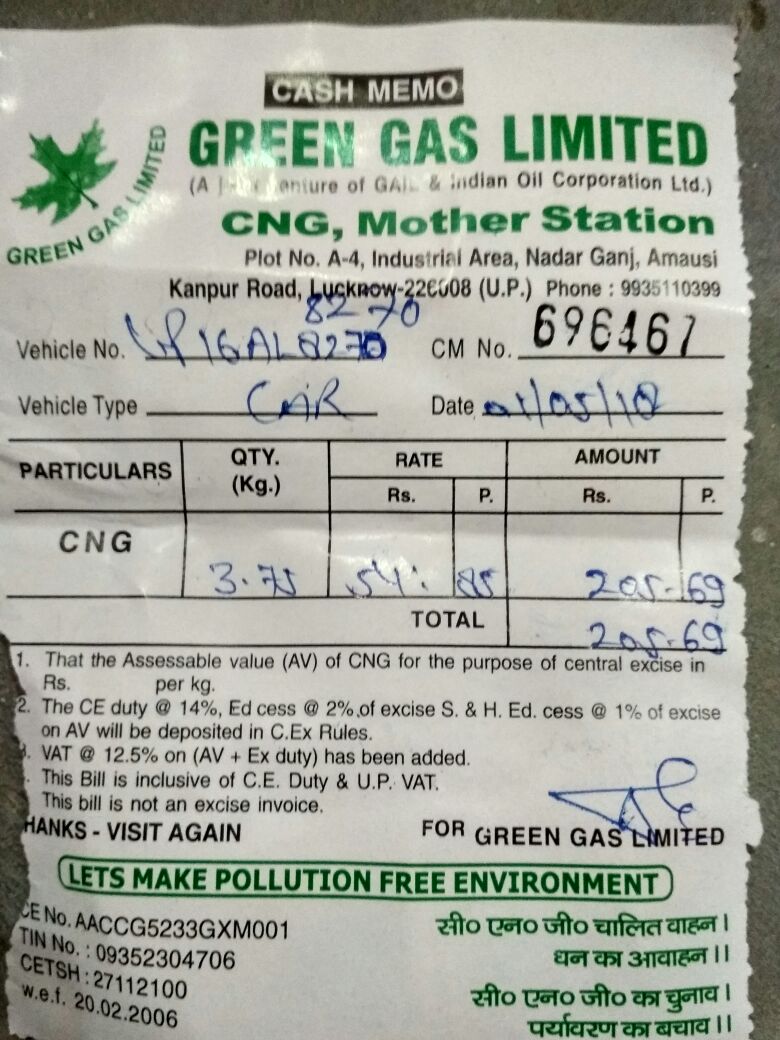 CASH MEMO
GREEN GAS LIMITED
GREEN GAS LIMITED
(A Joint Venture of GAIL & Indian Oil Corporation Ltd.)
CNG, Mother Station
Plot No. A-4, Industrial Area, Nadar Ganj, Amausi
Kanpur Road, Lucknow-226008 (U.P.) Phone : 9935110399
8270
Vehicle No. UP16AL8270 CM No. 696467
Vehicle Type CAR Date 01/05/18
PARTICULARS QTY. (Kg.) RATE AMOUNT
Rs. P. Rs. P.
CNG 3.75 54. 85 205-69
TOTAL 205-69
1. That the Assessable value (AV) of CNG for the purpose of central excise in
Rs. per kg.
2. The CE duty @ 14%, Ed cess @ 2% of excise S. & H. Ed. cess @ 1% of excise
on AV will be deposited in C.Ex Rules.
3. VAT @ 12.5% on (AV + Ex duty) has been added.
. This Bill is inclusive of C.E. Duty & U.P. VAT.
This bill is not an excise invoice.
HANKS - VISIT AGAIN FOR GREEN GAS LIMITED
LETS MAKE POLLUTION FREE ENVIRONMENT
CE No. AACCG5233GXM001
TIN No. : 09352304706
CETSH : 27112100
w.e.f. 20.02.2006
सी० एन० जी० चालित वाहन।
धन का आवाहन।।
सी० एन० जी० का चुनाव।
पर्यावरण का बचाव।।